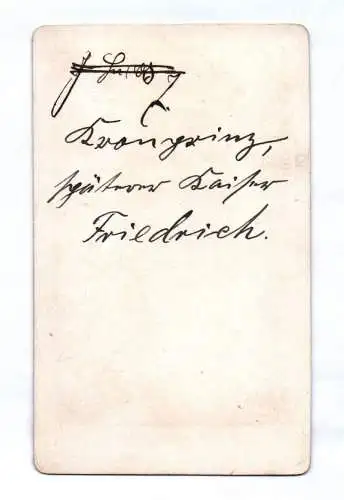 Kronprinz,
späterer Kaiser
Friedrich.